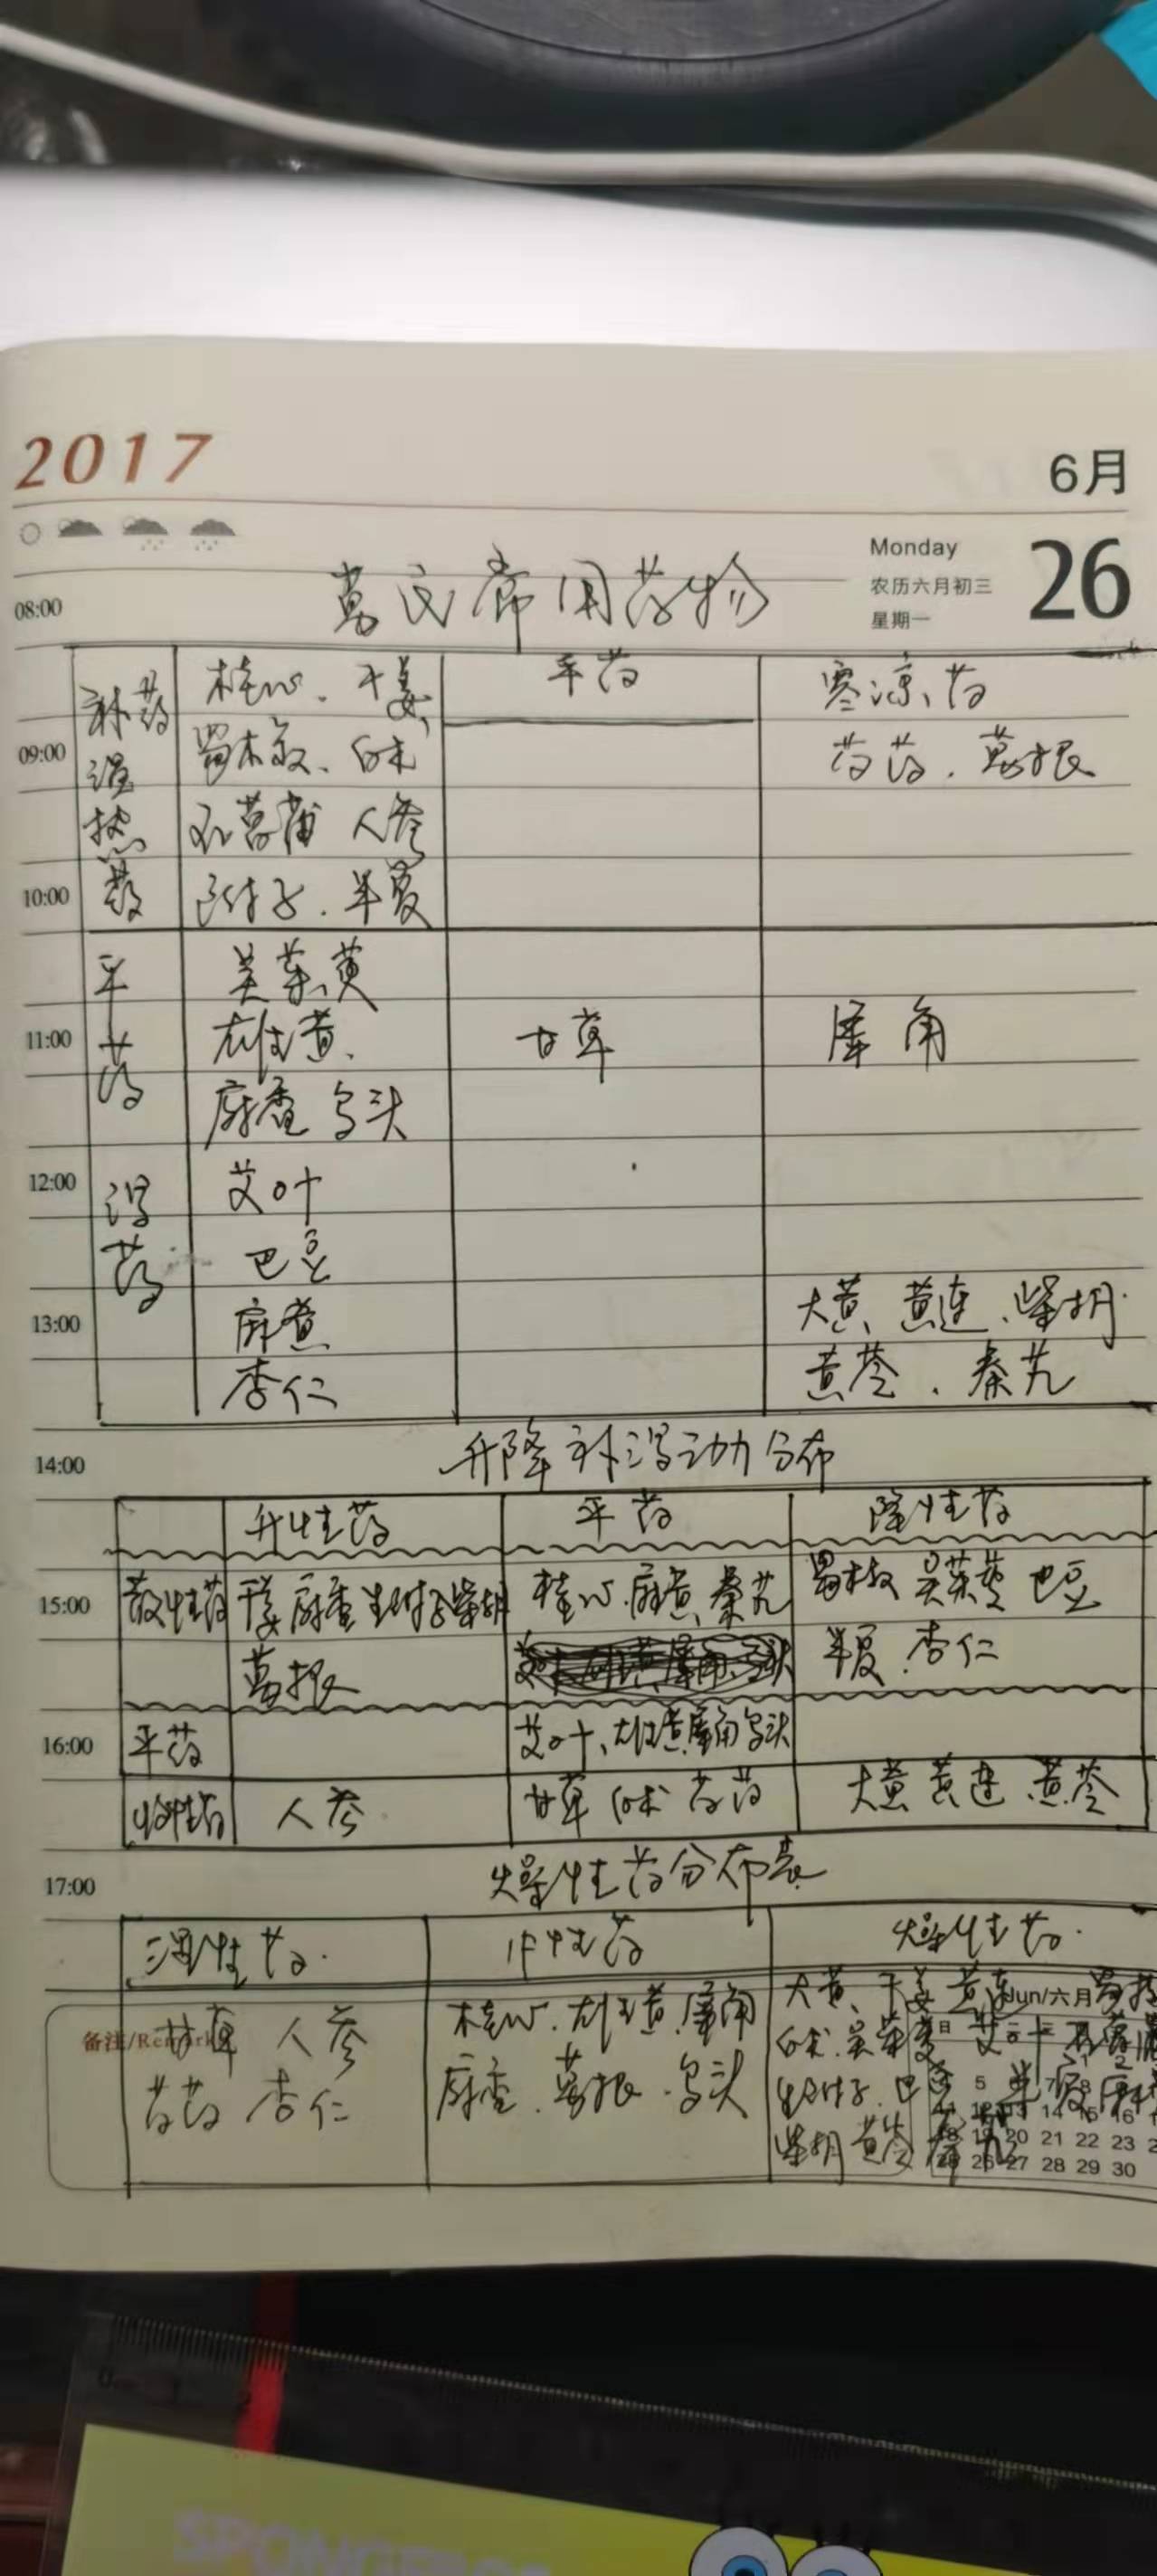 2017
6月
Monday
农历六月初三
星期一
26
08:00
葛氏常用药物
补药
温热药
桂心、干姜、
平药
寒凉药
09:00
蜀椒、白术
芍药、葛根
石菖蒲 人参
10:00
附子、半夏
平药
吴茱萸
11:00
雄黄、
甘草
犀角
麝香 乌头
12:00
泻药
艾叶
巴豆
13:00
麻黄
大黄、黄连、柴胡
杏仁
黄芩、秦艽
14:00
升降补泻动力分布
升性药
平药
降性药
15:00
散性药
干姜 麝香 生附子 柴胡
桂心 麻黄 秦艽
蜀椒 吴茱萸 巴豆
葛根
半夏 杏仁
16:00
平药
艾叶、雄黄 犀角 乌头
人参
甘草 白术 芍药
大黄 黄连 黄芩
17:00
燥性药分布表
湿性药
中性药
燥性药
备注/Remark
甘草 人参
桂心、雄黄 犀角
大黄、干姜 黄连
Jun/六月
芍药 杏仁
麝香、葛根、乌头
白术 吴茱萸 艾叶
生附子、巴豆 半夏 麻
柴胡 黄芩
5 7 8
12 13 14 15 16
18 19 20 21 22 23
26 27 28 29 30
SPONGE